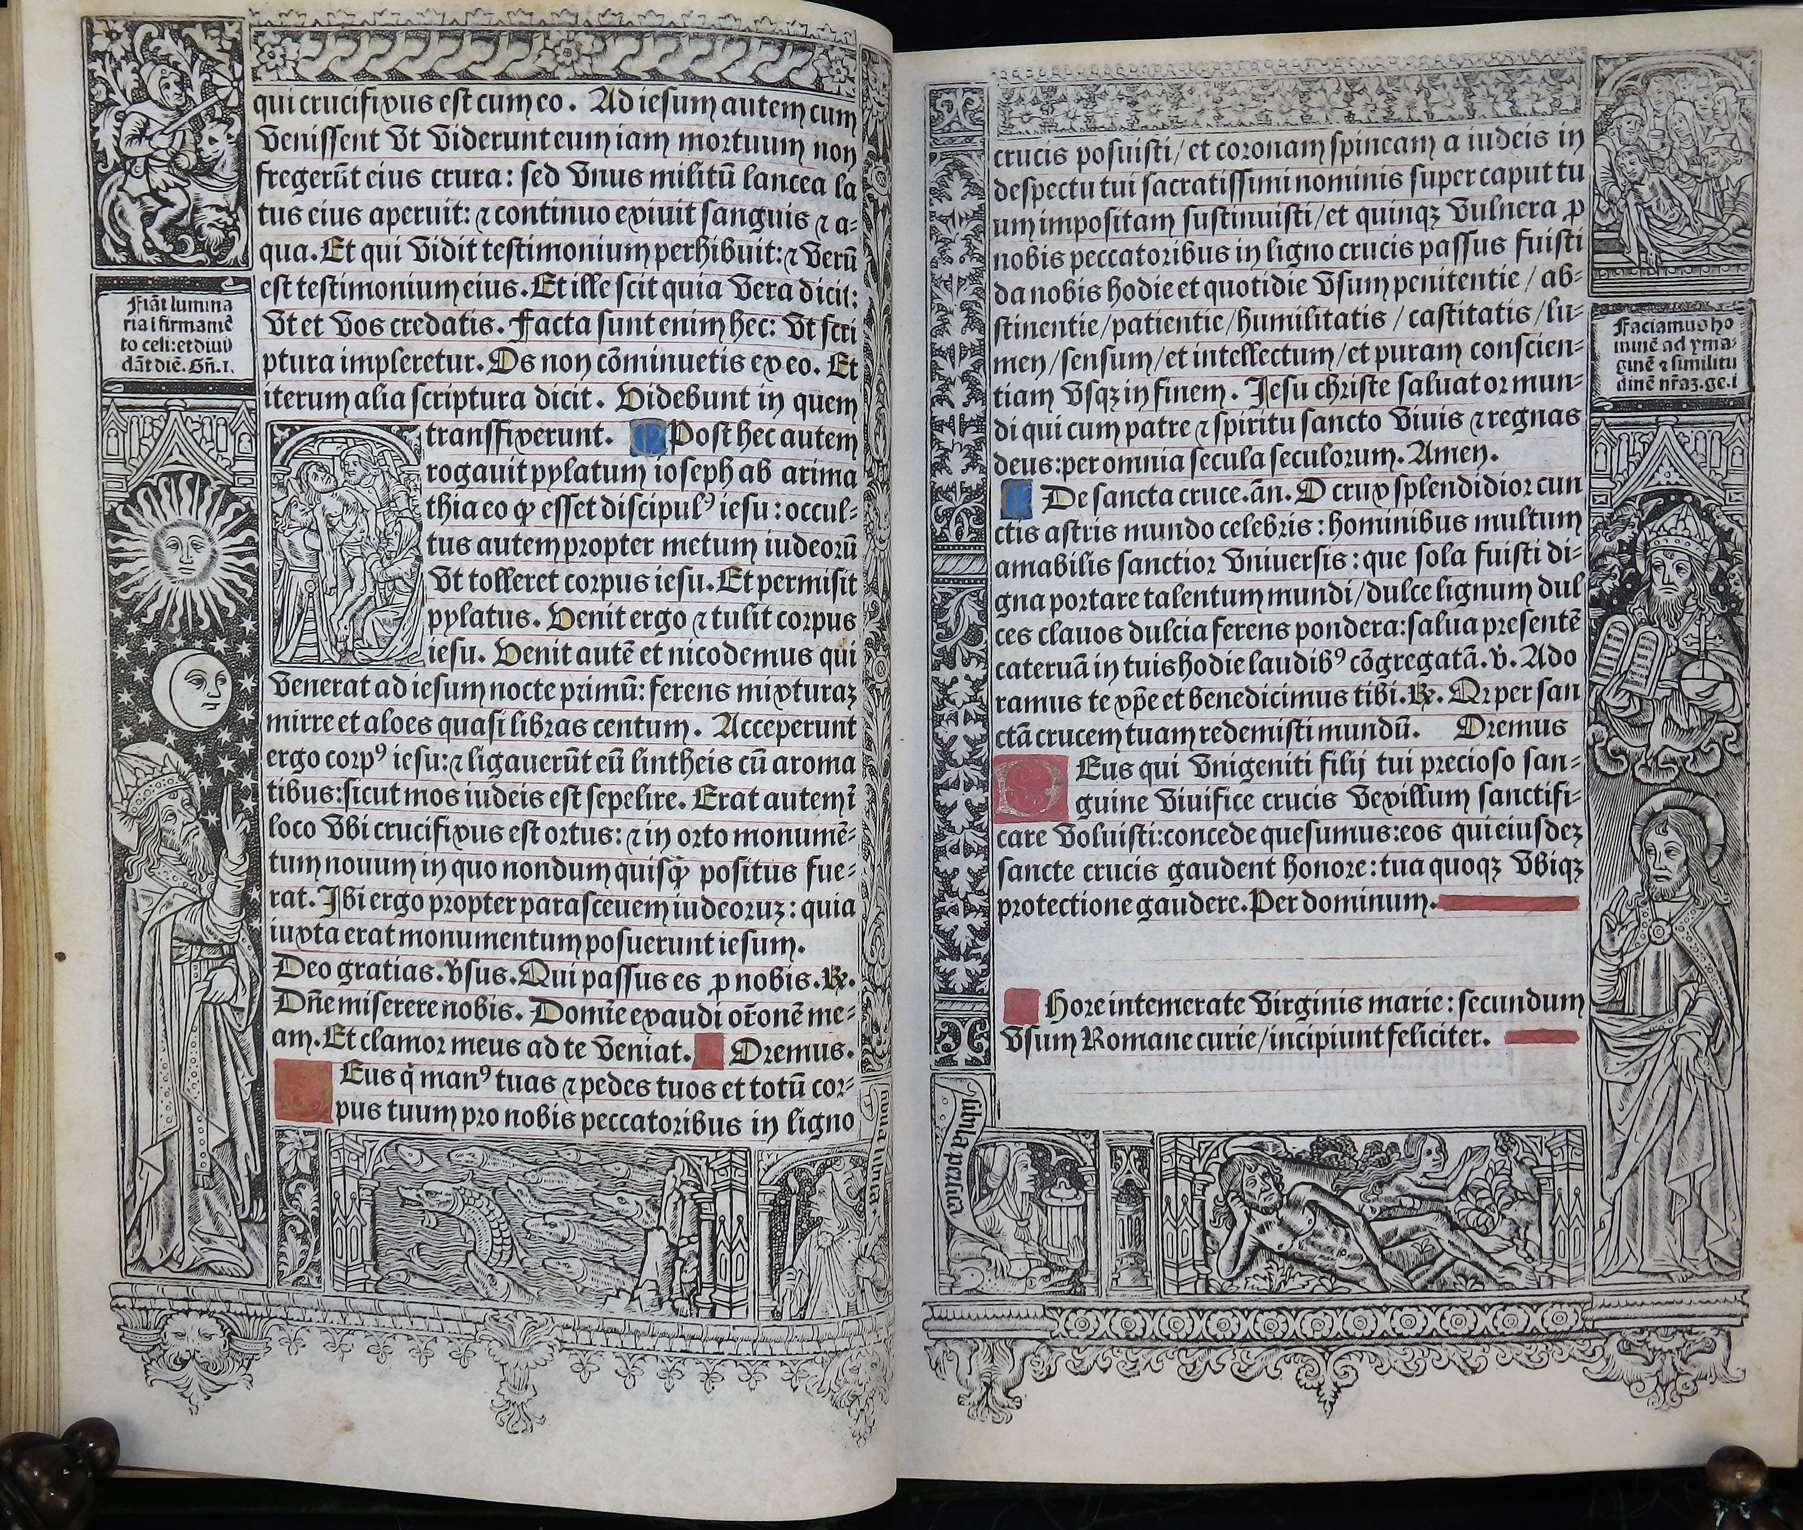 qui crucifixus est cum eo. Ad iesum autem cum
venissent vt viderunt eum iam mortuum non
fregerũt eius crura: sed vnus militũ lancea la
tus eius aperuit: ⁊ continuo exiuit sanguis ⁊ a-
qua. Et qui vidit testimonium perhibuit: ⁊ verũ
est testimonium eius. Et ille scit quia vera dicit:
vt et vos credatis. Facta sunt enim hec: vt scri
ptura impleretur. Os non cõminuetis ex eo. Et
iterum alia scriptura dicit. Videbunt in quem
transfixerunt. Post hec autem
rogauit pylatum ioseph ab arima
thia eo ꝙ esset discipulꝰ iesu: occul-
tus autem propter metum iudeorũ
vt tolleret corpus iesu. Et permisit
pylatus. Venit ergo ⁊ tulit corpus
iesu. Venit autẽ et nicodemus qui
venerat ad iesum nocte primũ: ferens mixturaꝫ
mirre et aloes quasi libras centum. Acceperunt
ergo corpꝰ iesu: ⁊ ligauerũt eũ lintheis cũ aroma
tibus: sicut mos iudeis est sepelire. Erat autem ĩ
loco vbi crucifixus est ortus: ⁊ in orto monumẽ-
tum nouum in quo nondum quisq̃ positus fue-
rat. Ibi ergo propter parasceuem iudeoruꝫ: quia
iuxta erat monumentum posuerunt iesum.
Deo gratias. v̓sus. Qui passus es ꝓ nobis. ℟.
Dñe miserere nobis. Domĩe exaudi or̃onẽ me-
am. Et clamor meus ad te veniat. Oremus.
Deus q̇ manꝰ tuas ⁊ pedes tuos et totũ cor-
pus tuum pro nobis peccatoribus in ligno
Fiãt lumina
ria i firmamẽ
to celi: et diuĩ
dãt diẽ. Gñ. 1.
crucis posuisti/ et coronam spineam a iudeis in
despectu tui sacratissimi nominis super caput tu
um impositam sustinuisti/ et quinqꝫ vulnera ꝓ
nobis peccatoribus in ligno crucis passus fuisti
da nobis hodie et quotidie vsum penitentie/ ab-
stinentie/ patientie/ humilitatis/ castitatis/ lu-
men/ sensum/ et intellectum/ et puram conscien-
tiam vsqꝫ in finem. Jesu christe saluator mun-
di qui cum patre ⁊ spiritu sancto viuis ⁊ regnas
deus: per omnia secula seculorum. Amen.
De sancta cruce. añ. O crux splendidior cun
ctis astris mundo celebris: hominibus multum
amabilis sanctior vniuersis: que sola fuisti di-
gna portare talentum mundi/ dulce lignum dul
ces clauos dulcia ferens pondera: salua presentẽ
cateruã in tuis hodie laudibꝰ cõgregatã. v̓. Ado
ramus te xp̃e et benedicimus tibi. ℟. Qr per san
ctã crucem tuam redemisti mundũ. Oremus
Deus qui vnigeniti filij tui precioso san-
guine viuifice crucis vexillum sanctifi-
care voluisti: concede quesumus: eos qui eiusdeꝫ
sancte crucis gaudent honore: tua quoqꝫ vbiqꝫ
protectione gaudere. Per dominum.
Hore intemerate virginis marie: secundum
vsum Romane curie/ incipiunt feliciter.
Faciamus ho
minẽ ad yma-
ginẽ ⁊ similitu
dinẽ nr̃aꝫ. ge. i